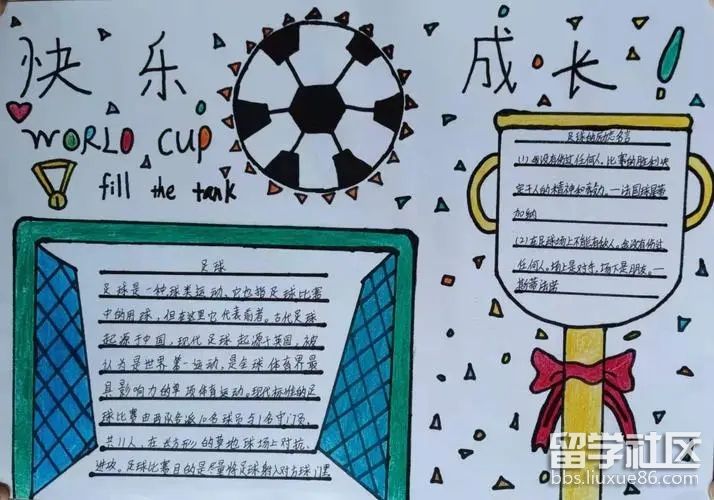 快乐 成长!
WORLD CUP
fill the tank
足球
足球是一种球类运动,它也指足球比赛
中的用球,但在这里它代表前者。古代足球
起源于中国,现代足球起源于英国,被
认为是世界第一运动,是全球体育界最
具影响力的单项体育运动。现代标准的足
球比赛由两队各派10名球员与1名守门员,
共11人,在长方形的草地球场上对抗、
进攻。足球比赛目的是尽量将足球射入对方球门里
足球的励志名言
(1)我没有伤过任何人,比赛的胜利决
定于人的精神和努力。—法国球星蒂
加纳
(2)在足球场上不能有敌人,我没有伤过
任何人。场上是对手,场下是朋友。—
斯蒂法诺
留学社区
bbs.liuxue86.com